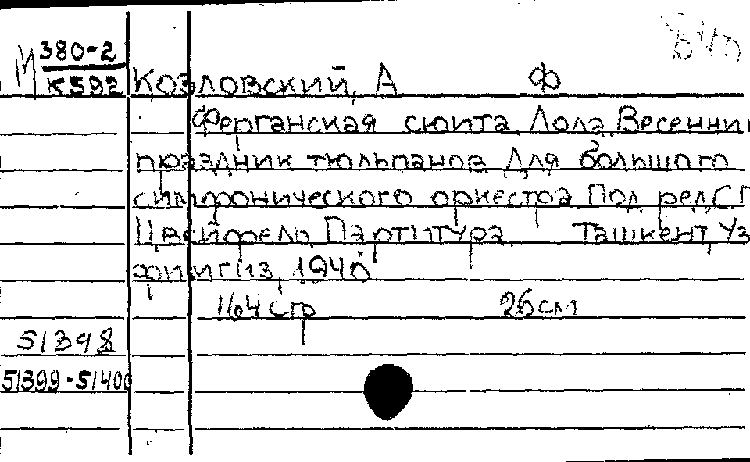 М 380-2
К592 Козловский, А Ф
Ферганская сюита Лола Весенни
праздник тюльпанов Для большого
симфонического оркестра Под ред. С Г
Цвейфель Партитура Ташкент, Уз
фнигиз, 1940
164 стр 26 см
51398
51399-51400